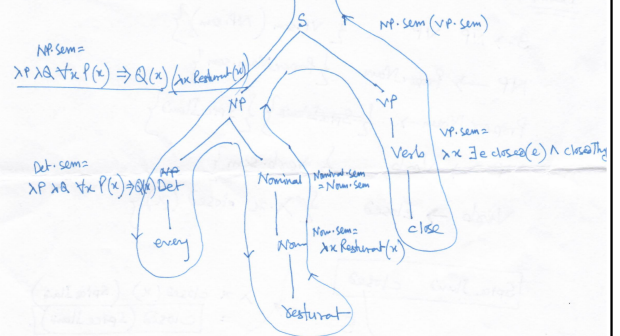 S
NP.sem (VP.sem)
NP.sem =
λP λQ ∀x P(x) ⇒ Q(x) (λx Resturat(x))
NP
VP
VP.sem =
λx ∃e closea(e) ∧ closeThg
Verb
Det.sem =
λP λQ ∀x P(x) ⇒ Q(x)
NP
Det
Nominal
Nominal.sem
= Noun.sem
every
Noun
Noun.sem =
λx Resturat(x)
close
resturat